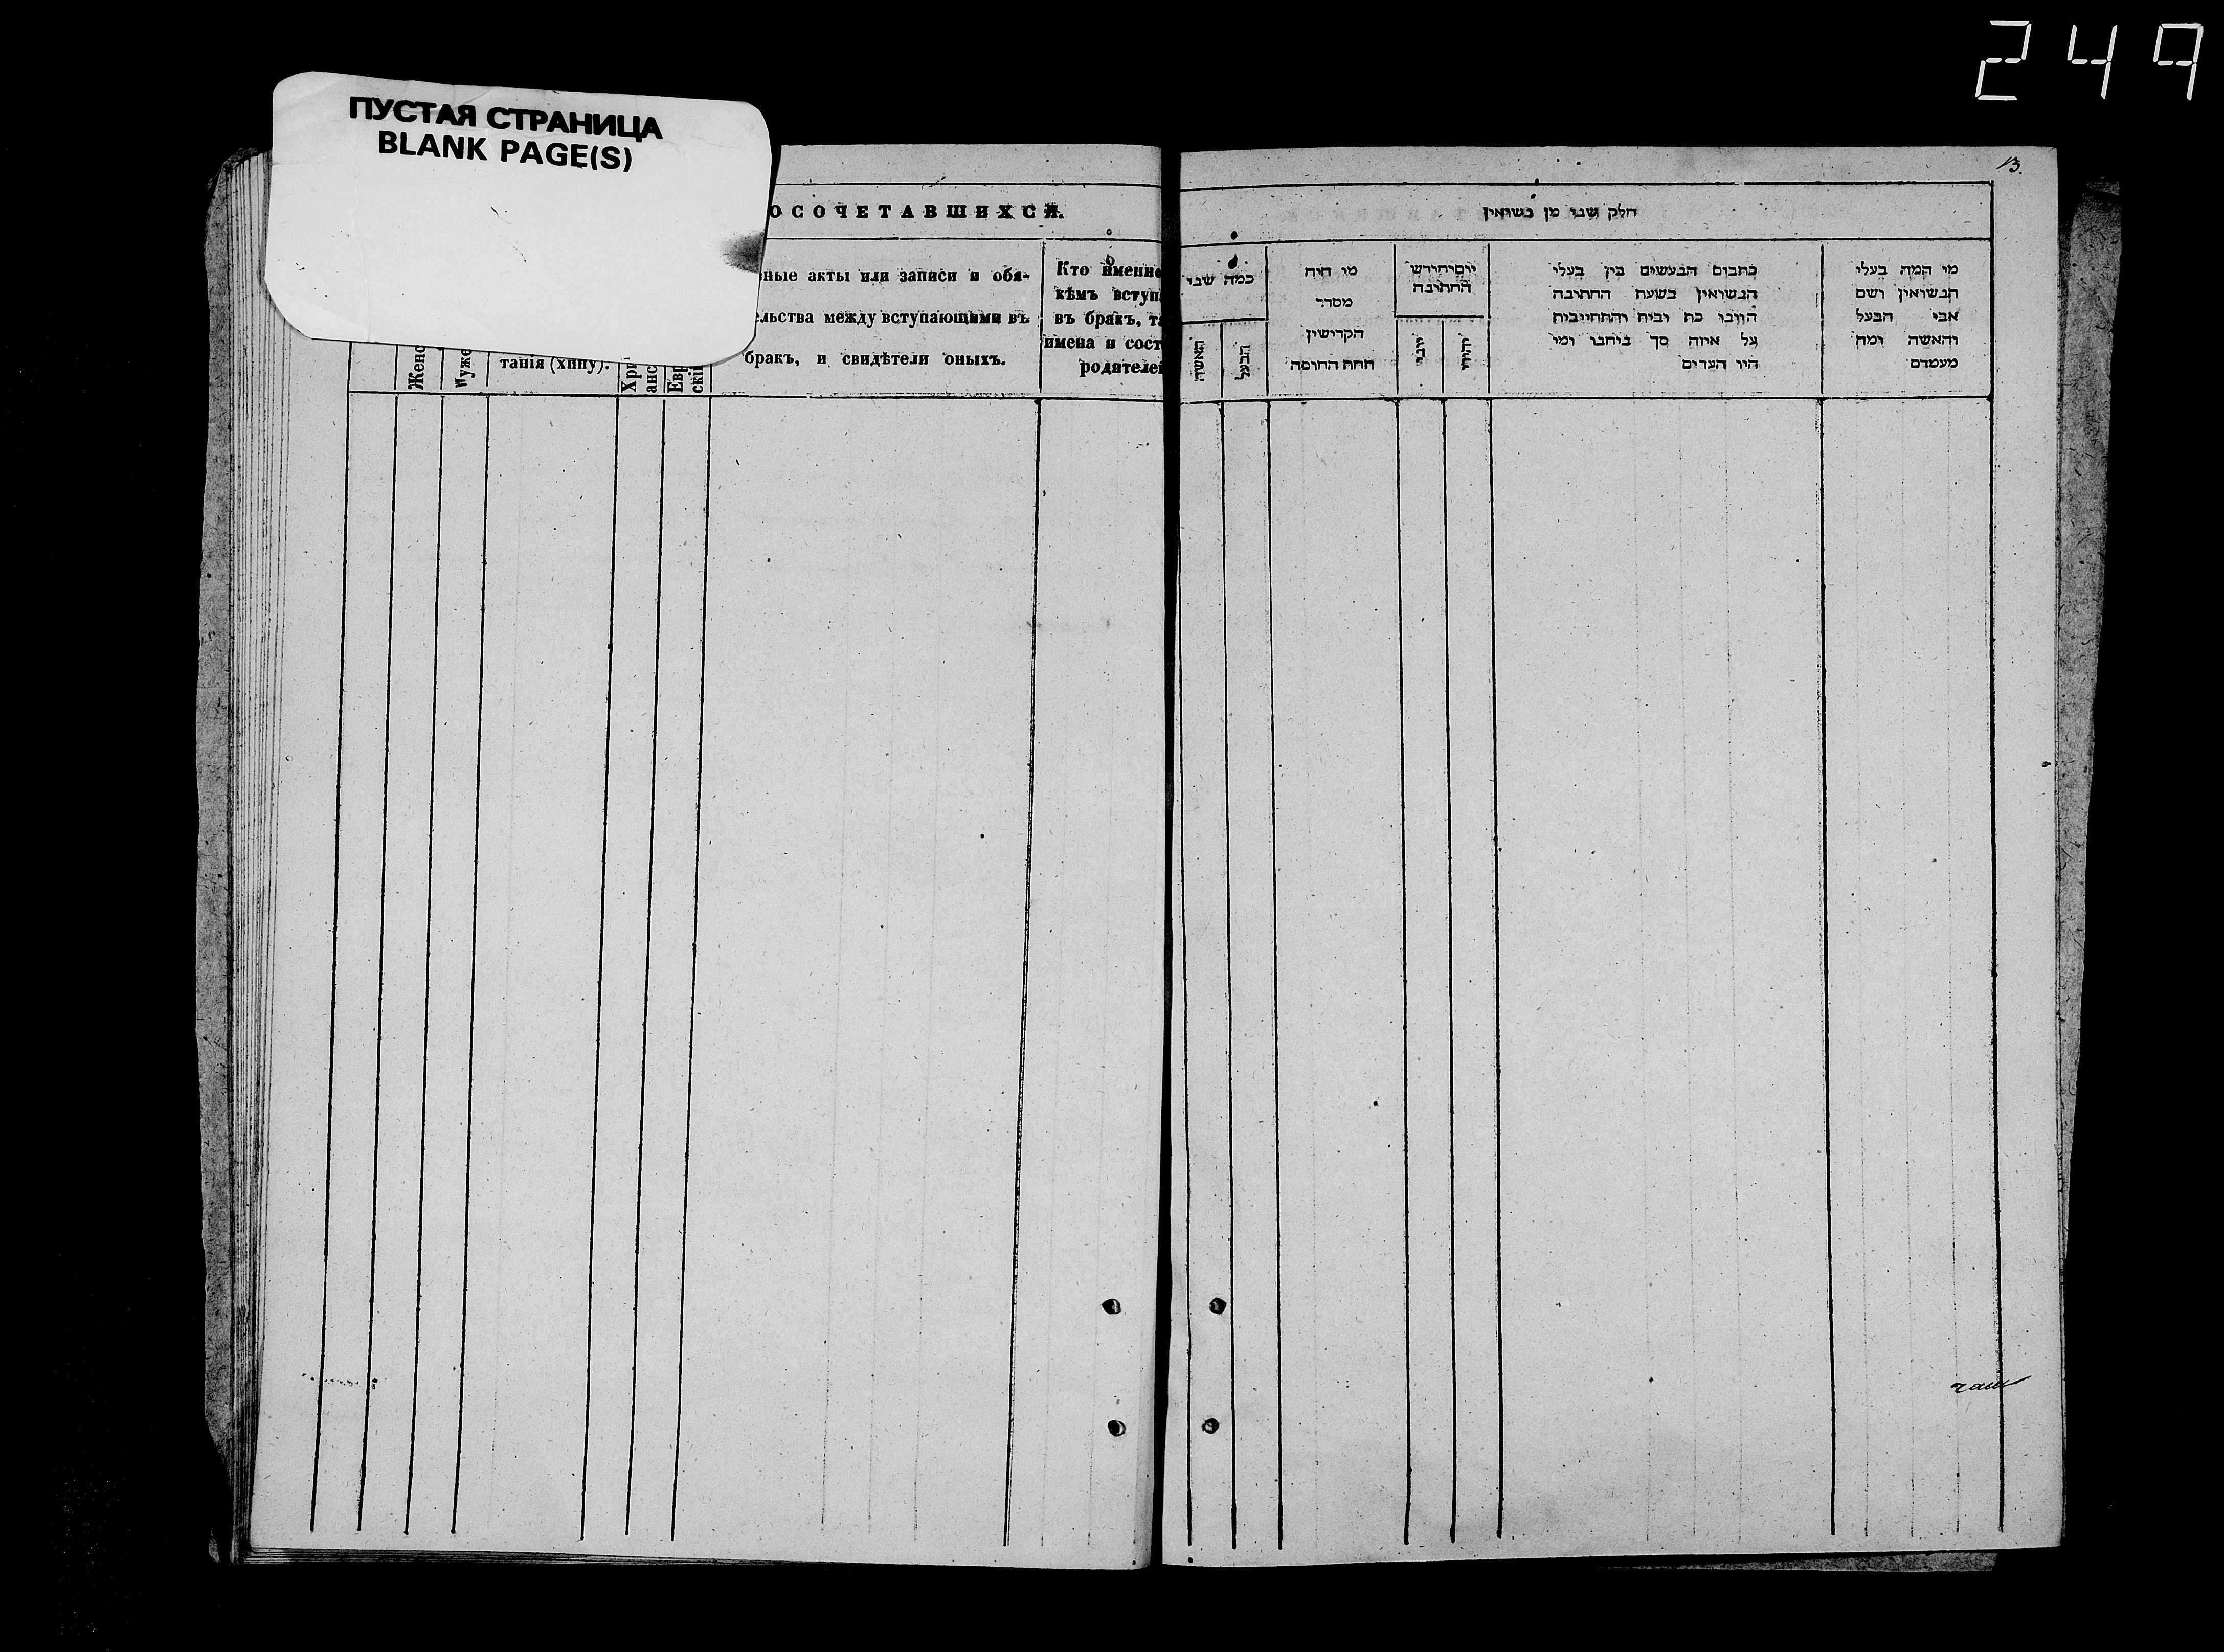 249
ПУСТАЯ СТРАНИЦА
BLANK PAGE(S)
13.
ОСОЧЕТАВШИХСЯ.
ные акты или записи и обя-
ельства между вступающими въ
бракъ, и свидѣтели оныхъ.
Женс
Муже
танія (хипу).
Хри
анс
Евр
скій
Кто именно
кѣмъ вступ
въ бракъ, та
имена и сост
родителей
חלק שני מן נשואין
כמה שני
האשה
הבעל
מי היה
מסדר
הקדושין
תחת החופה
החתונה
יהודי
כתבים הנעשים בין בעלי
הנשואין בשעת החתונה
על איזה סך ביניהו ומי
היו העדים
מי המה בעלי
הנשואין ושם
אבי הבעל
והאשה ומה
מעמדם